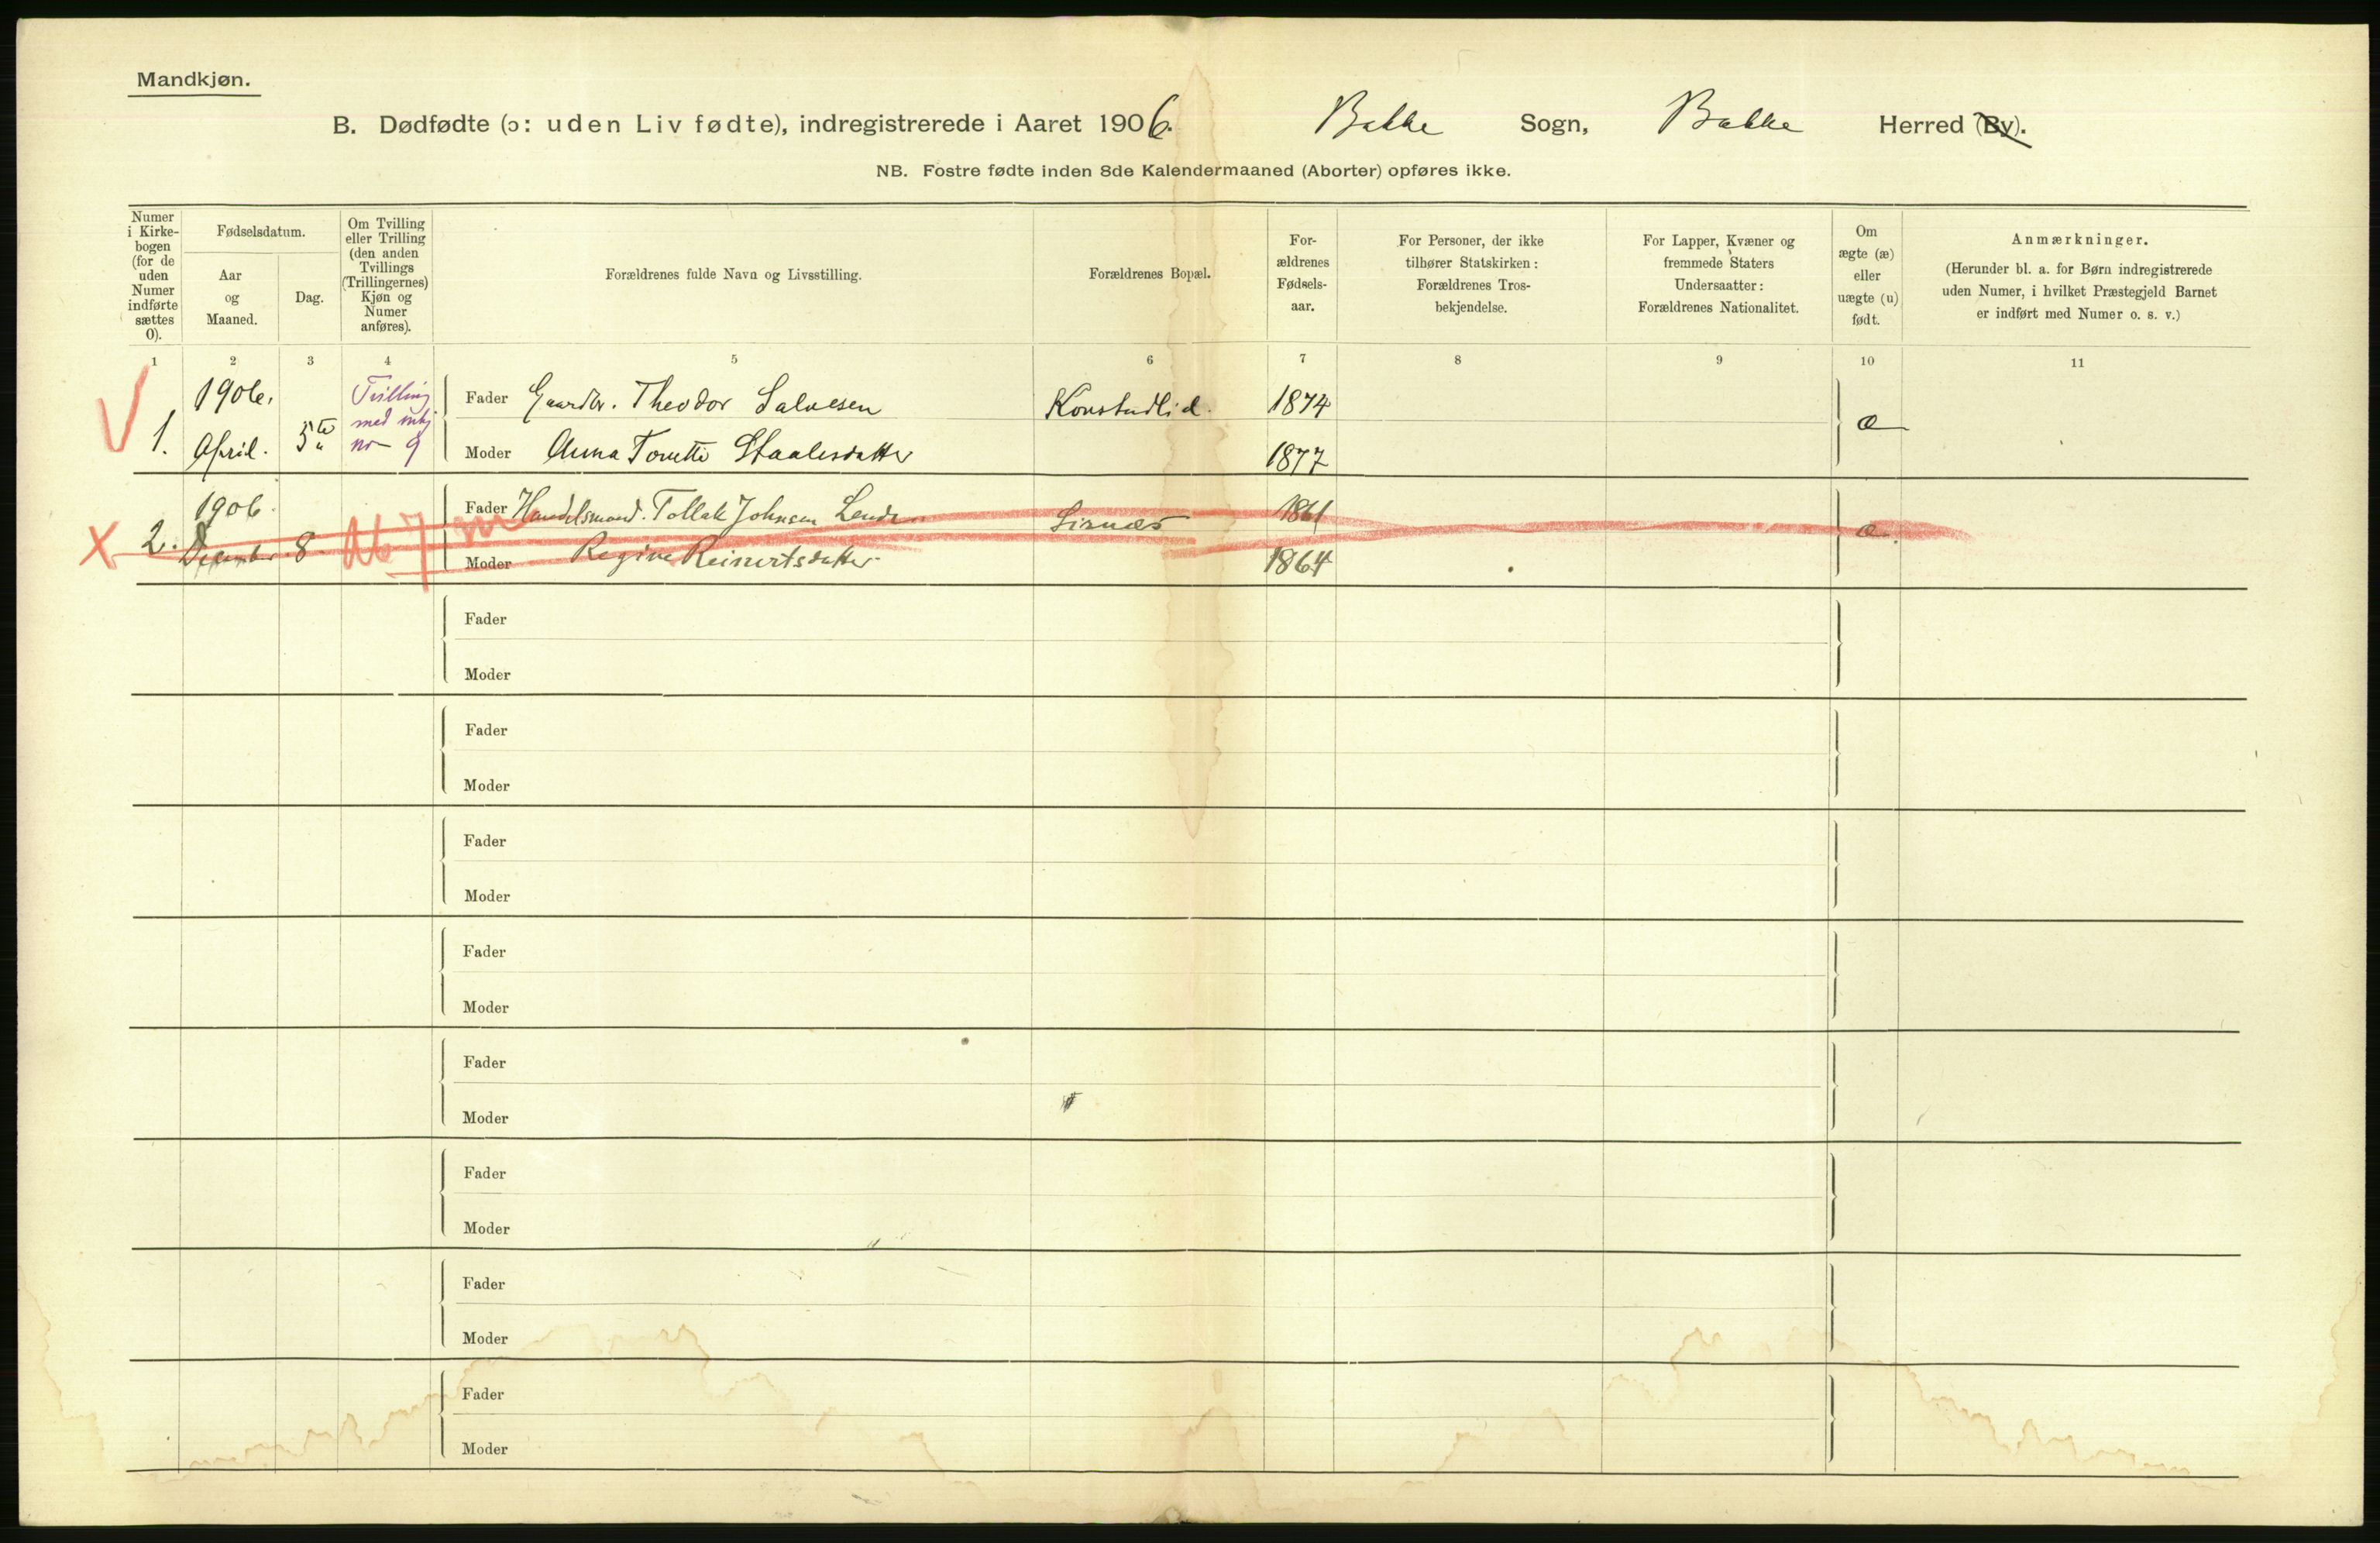 Mandkjøn.
B. Dødfødte (ɔ: uden Liv fødte), indregistrerede i Aaret 1906. Bakke Sogn, Bakke Herred (By).
NB. Fostre fødte inden 8de Kalendermaaned (Aborter) opføres ikke.
Numer
i Kirke-
bogen
(for de
uden
Numer
indførte
sættes
0).
Fødselsdatum.
Aar
og
Maaned.
Dag.
Om Tvilling
eller Trilling
(den anden
Tvillings
(Trillingernes)
Kjøn og
Numer
anføres).
Forældrenes fulde Navn og Livsstilling.
Forældrenes Bopæl.
For-
ældrenes
Fødsels-
aar.
For Personer, der ikke
tilhører Statskirken:
Forældrenes Tros-
bekjendelse.
For Lapper, Kvæner og
fremmede Staters
Undersaatter:
Forældrenes Nationalitet.
Om
ægte (æ)
eller
uægte (u)
født.
Anmærkninger.
(Herunder bl. a. for Børn indregistrerede
uden Numer, i hvilket Præstegjeld Barnet
er indført med Numer o. s. v.)
1 2 3 4 5 6 7 8 9 10 11
1906. Tvilling Fader Gaardbr. Theodor Salvesen 1874
med
1. April. 5te no 9 Moder Anna Staalesdatter 1877 æ
1906. Fader Handelsmand. Tollak Johnsen Lende Sirnæs 1861
2. December 8. Moder Regine Reinertsdatter 1864 æ.
Fader
Moder
Fader
Moder
Fader
Moder
Fader
Moder
Fader
Moder
Fader
Moder
Fader
Moder
Fader
Moder